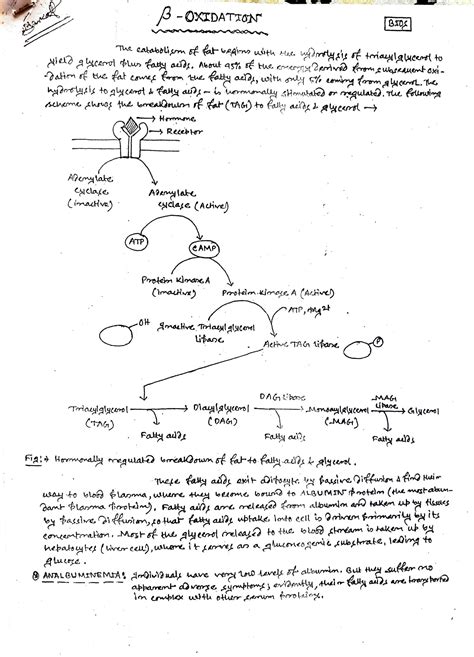 β-OXIDATION
The catabolism of fat begins with the hydrolysis of triacylglycerol to
yield glycerol plus fatty acids. About 95% of the energy derived from subsequent oxi-
dation of the fat comes from the fatty acids, with only 5% coming from glycerol. The
hydrolysis to glycerol & fatty acids - is hormonally stimulated or regulated. The following
scheme shows the breakdown of fat (TAG) to fatty acids & glycerol →
Hormone
Receptor
Adenylate
cyclase
(inactive)
Adenylate
cyclase (Active)
ATP
CAMP
Protein Kinase A
(Inactive)
Protein Kinase A (Active)
ATP, Mg2+
OH
Inactive Triacylglycerol
lipase
Active TAG lipase
P
Triacylglycerol
(TAG)
Fatty acids
Diacylglycerol
(DAG)
DAG lipase
Fatty acids
Monoacylglycerol
(MAG)
MAG
lipase
Fatty acids
Glycerol
Fig:→ Hormonally regulated breakdown of fat to fatty acids & glycerol.
These fatty acids exit adipocyte by passive diffusion & find their
way to blood plasma, where they become bound to ALBUMIN protein (the most abun-
dant plasma protein). Fatty acids are released from albumin and taken up by tissues
by passive diffusion, so that fatty acids uptake into cell is driven primarily by its
concentration. Most of the glycerol released to the blood stream is taken up by
hepatocytes (liver cell), where it serves as a gluconeogenic substrate, leading to
glucose.
ANALBUMINEMIA: Individuals have very low levels of albumin. But they suffer no
apparent adverse symptoms; evidently, their fatty acids are transported
in complex with other serum proteins.